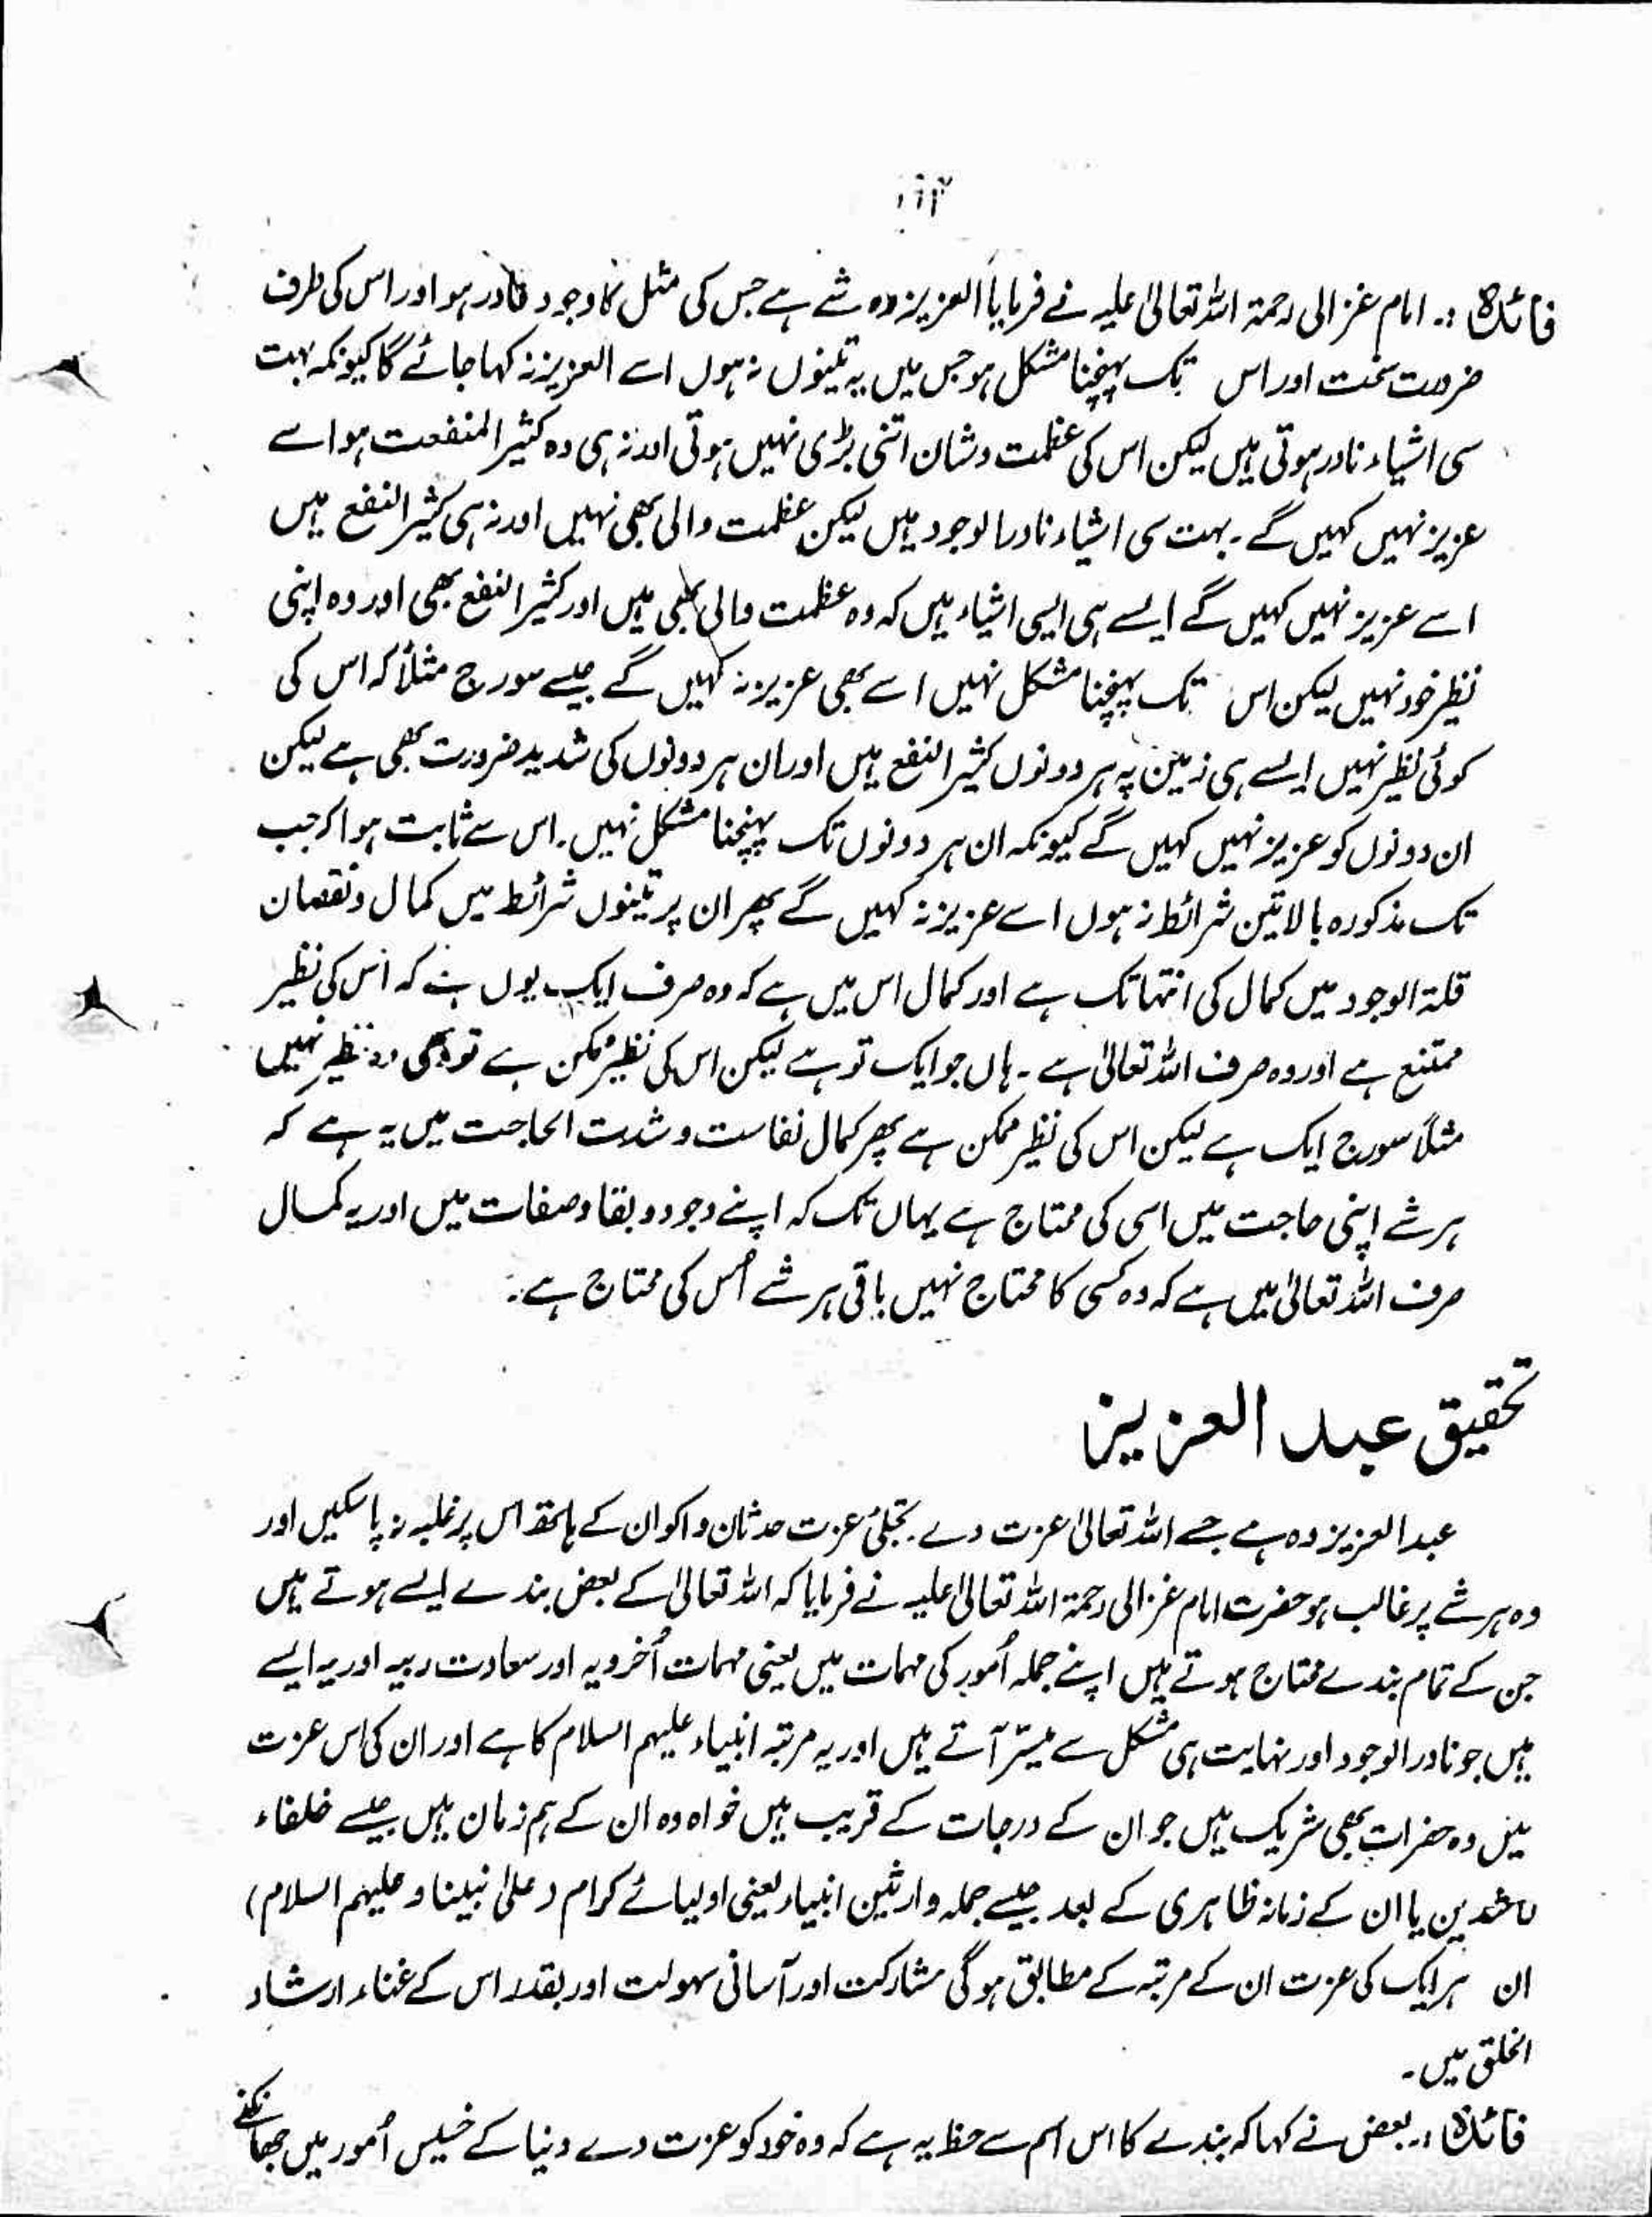 فائدہ :۔ امام غزالی رحمۃ اللہ تعالیٰ علیہ نے فرمایا العزیز وہ شے ہے جس کی مثل کا وجود نادر ہو اور اس کی طرف
ضرورت سخت اور اس تک پہنچنا مشکل ہو جس میں یہ تینوں نہ ہوں اسے العزیز نہ کہا جائے گا کیونکہ بہت
سی اشیاء نادر ہوتی ہیں لیکن اس کی عظمت و شان اتنی بڑی نہیں ہوتی اور نہ ہی وہ کثیر المنفعت ہو اسے
عزیز نہیں کہیں گے۔ بہت سی اشیاء نادر الوجود ہیں لیکن عظمت والی بھی نہیں اور نہ ہی کثیر النفع ہیں
اسے عزیز نہیں کہیں گے ایسے ہی ایسی اشیاء ہیں کہ وہ عظمت والی بھی ہیں اور کثیر النفع بھی اور وہ اپنی
نظیر خود نہیں لیکن اس تک پہنچنا مشکل نہیں اسے بھی عزیز نہ کہیں گے جیسے سورج مثلاً کہ اس کی
کوئی نظیر نہیں ایسے ہی زمین پہ ہر دونوں کثیر النفع ہیں اور ان ہر دونوں کی شدید ضرورت بھی ہے لیکن
ان دونوں کو عزیز نہیں کہیں گے کیونکہ ان ہر دونوں تک پہنچنا مشکل نہیں۔ اس سے ثابت ہوا کہ جب
تک مذکورہ بالا تین شرائط نہ ہوں اسے عزیز نہ کہیں گے پھر ان پر تینوں شرائط میں کمال و نقصان
قلۃ الوجود میں کمال کی انتہا تک ہے اور کمال اس میں ہے کہ وہ صرف ایک یوں ہے کہ اس کی نظیر
ممتنع ہے اور وہ صرف اللہ تعالیٰ ہے۔ ہاں جو ایک تو ہے لیکن اس کی نظیر ممکن ہے تو بھی وہ نظیر نہیں
مثلاً سورج ایک ہے لیکن اس کی نظیر ممکن ہے پھر کمال نفاست و شدت الحاجت میں یہ ہے کہ
ہر شے اپنی حاجت میں اسی کی محتاج ہے یہاں تک کہ اپنے وجود و بقا و صفات میں اور یہ کمال
صرف اللہ تعالیٰ میں ہے کہ وہ کسی کا محتاج نہیں باقی ہر شے اُس کی محتاج ہے۔
تحقیق عبد العزیز
عبد العزیز وہ ہے جسے اللہ تعالیٰ عزت دے۔ تجلیٔ عزت حدثان و اکوان کے ہاتھ اس پر غلبہ نہ پا سکیں اور
وہ ہر شے پر غالب ہو حضرت امام غزالی رحمۃ اللہ تعالیٰ علیہ نے فرمایا کہ اللہ تعالیٰ کے بعض بندے ایسے ہوتے ہیں
جن کے تمام بندے محتاج ہوتے ہیں اپنے جملہ اُمور کی مہمات میں یعنی مہمات اُخرویہ اور سعادت ربیہ اور یہ ایسے
ہیں جو نادر الوجود اور نہایت ہی مشکل سے میسّر آتے ہیں اور یہ مرتبہ انبیاء علیہم السلام کا ہے اور ان کی اس عزت
میں وہ حضرات بھی شریک ہیں جو ان کے درجات کے قریب ہیں خواہ وہ ان کے ہم زمان ہیں جیسے خلفاء
راشدین یا ان کے زمانہ ظاہری کے بعد جیسے جملہ وارثین انبیاء یعنی اولیائے کرام (علیٰ نبینا و علیہم السلام)
ان ہر ایک کی عزت ان کے مرتبہ کے مطابق ہو گی مشارکت اور آسانی سہولت اور بقدر اس کے غناء ارشاد
الخلق میں۔
فائدہ :۔ بعض نے کہا کہ بندے کا اس اسم سے حظ یہ ہے کہ وہ خود کو عزت دے دنیا کے خسیس اُمور میں جھانکنے